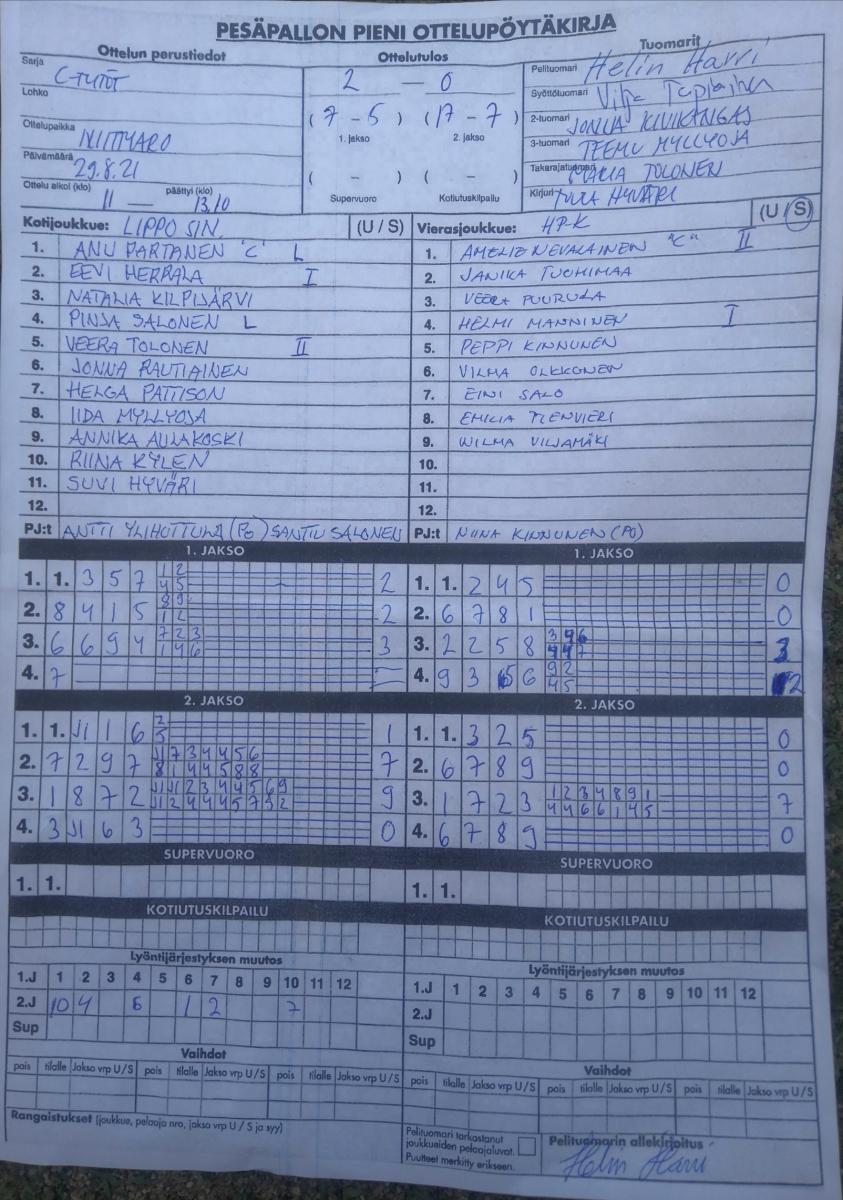 PESÄPALLON PIENI OTTELUPÖYTÄKIRJA
Ottelun perustiedot
Sarja C-TYTÖT
Lohko
Ottelupaikka NIITTYARO
Päivämäärä 29.8.21
Ottelu alkoi (klo) 11 — päättyi (klo) 13.10
Ottelutulos
2 — 0
(7 - 5) (17 - 7)
1. jakso 2. jakso
( - ) ( - )
Supervuoro Kotiutuskilpailu
Tuomarit
Pelituomari Helin Harri
Syöttötuomari Vilja
2-tuomari JONNA KIVIKANGAS
3-tuomari TEEMU MYLLYOJA
Takarajatuomari MARIA TOLONEN
Kirjuri TUULA HYVÄRI
Kotijoukkue: LIPPO SIN. (U / S)
1. ANU PARTANEN "C" L
2. EEVI HERRALA I
3. NATALIA KILPIJÄRVI
4. PINJA SALONEN L
5. VEERA TOLONEN II
6. JONNA RAUTIAINEN
7. HELGA PATTISON
8. IIDA MYLLYOJA
9. ANNIKA AULAKOSKI
10. RIINA KYLEN
11. SUVI HYVÄRI
12.
PJ:t ANTTI YLIHUTTULA (PO) SALONEN
Vierasjoukkue: HP-K (U / S)
1. AMELIE NEVALAINEN "C" II
2. JANIKA TUOHIMAA
3. VEERA PUURULA
4. HELMI MANNINEN I
5. PEPPI KINNUNEN
6. VILMA OLKKONEN
7. EINI SALO
8. EMILIA
9. WILMA VILJAMÄKI
10.
11.
12.
PJ:t NIINA KINNUNEN (PO)
1. JAKSO
1. 1. 3 5 7 1 2 2
4 5
2. 8 4 1 5 8 9 2
1 2
3. 6 6 9 4 7 2 3 3
1 4 6
4. 7 –
1. JAKSO
1. 1. 2 4 5 0
2. 6 7 8 1 0
3. 2 2 5 8 3 4 6 3
4 4 7
4. 9 3 6 6 9 2 2
4 5
2. JAKSO
1. 1. J1 1 6 2 1
5
2. 7 2 9 7 J1 7 3 4 4 5 6 7
8 1 4 4 5 8 8
3. 1 8 7 2 J1 J1 2 3 4 4 5 6 9 9
J1 2 4 4 4 5 7 9 2
4. 3 J1 6 3 0
2. JAKSO
1. 1. 3 2 5 0
2. 6 7 8 9 0
3. 1 7 2 3 1 2 3 4 8 9 1 7
4 4 6 6 1 4 5
4. 6 7 8 9 0
SUPERVUORO
1. 1.
SUPERVUORO
1. 1.
KOTIUTUSKILPAILU
KOTIUTUSKILPAILU
Lyöntijärjestyksen muutos
1.J 1 2 3 4 5 6 7 8 9 10 11 12
2.J 10 4 6 1 2 7
Sup
Lyöntijärjestyksen muutos
1.J 1 2 3 4 5 6 7 8 9 10 11 12
2.J
Sup
Vaihdot
pois tilalle Jakso vrp U / S pois tilalle Jakso vrp U / S pois tilalle Jakso vrp U / S
Vaihdot
pois tilalle Jakso vrp U / S pois tilalle Jakso vrp U / S pois tilalle Jakso vrp U / S
Rangaistukset (joukkue, pelaaja nro, jakso vrp U / S ja syy)
Pelituomari tarkastanut
joukkueiden pelaajaluvat.
Puutteet merkitty erikseen.
Pelituomarin allekirjoitus
Helin Harri